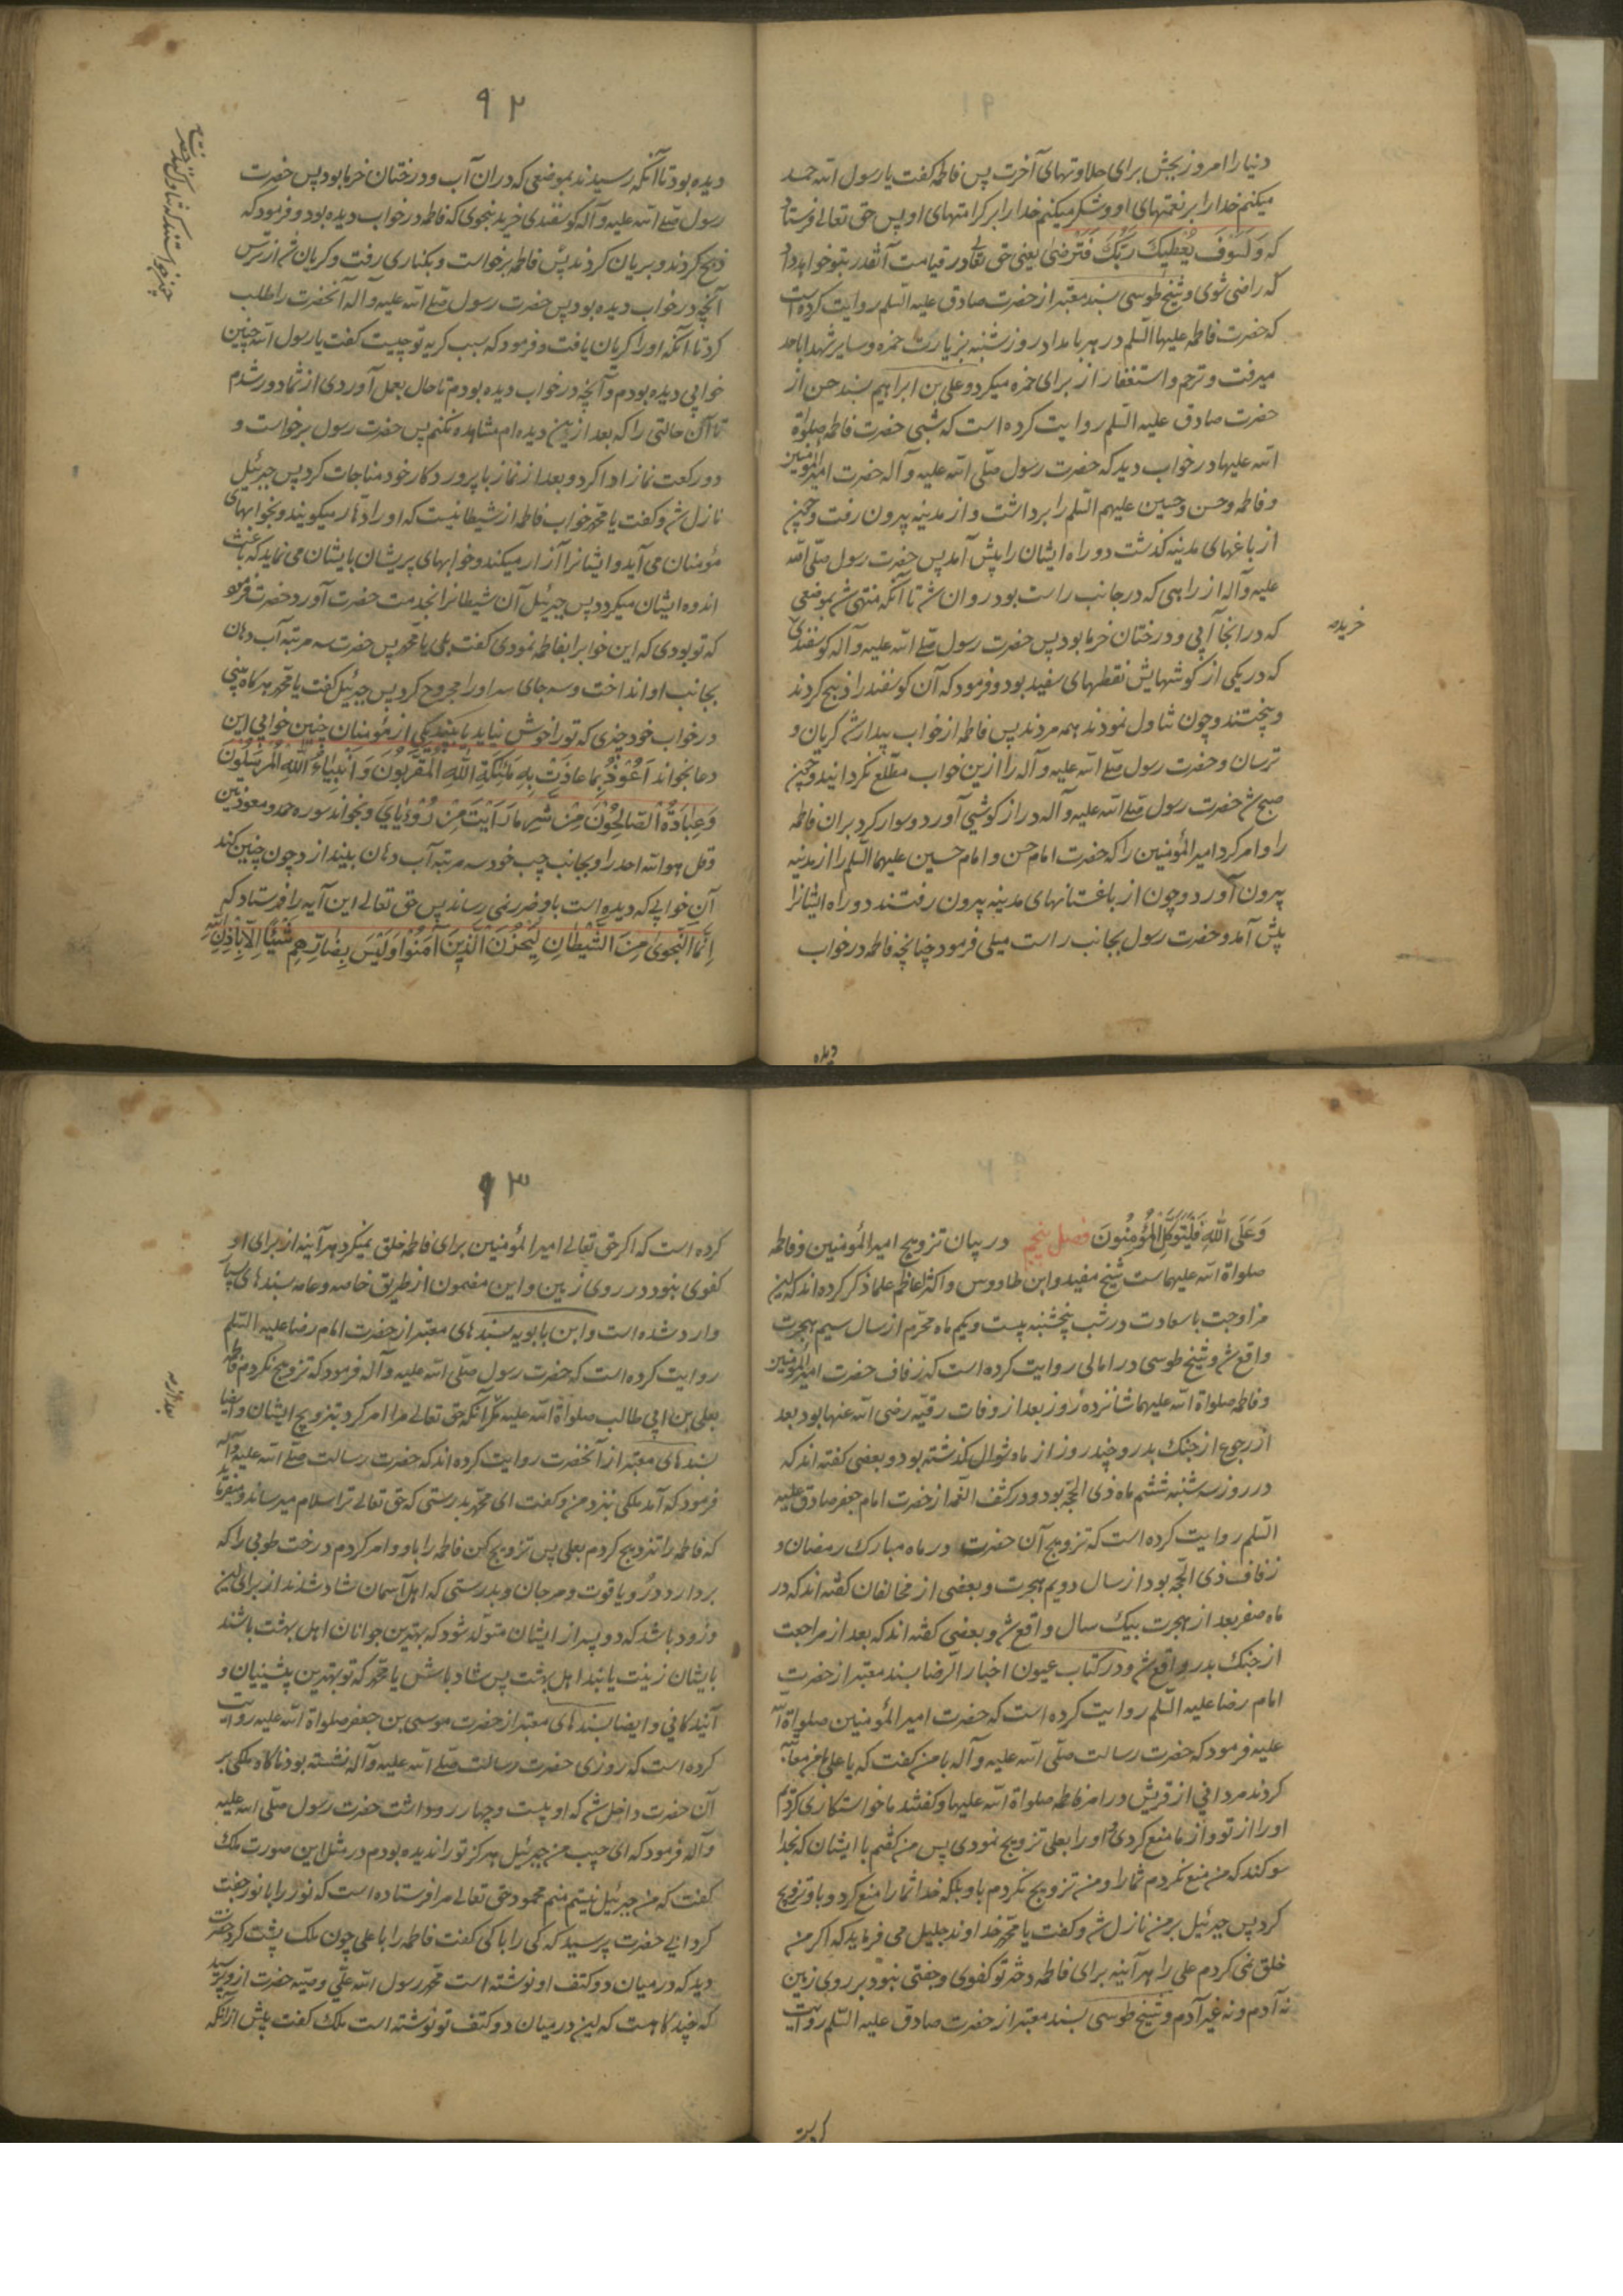 دنیا را امروز بچش برای حلاوتهای آخرت پس فاطمه کفت یا رسول الله حمد
میکنم خدا را بر نعمتهای او و شکر میکنم خدا را بر کرامتهای او پس حق تعالی فرستاد
که وَلَسَوفَ یُعْطیکَ رَبُّکَ فَتَرْضی یعنی حق تعالی در قیامت آنقدر بتو خواهد داد
که راضی شوی و شیخ طوسی بسند معتبر از حضرت صادق علیه السّلم روایت کرده است
که حضرت فاطمه علیها السّلم در هر بامداد روز شنبه بزیارت حمزه و سایر شهدا باحد
میرفت و ترحم و استغفار از برای حمزه میکرد و علی بن ابراهیم بسند حسن از
حضرت صادق علیه السّلم روایت کرده است که شبی حضرت فاطمه صلوة
الله علیها در خواب دید که حضرت رسول صلّی الله علیه و آله حضرت امیر المؤمنین
و فاطمه و حسن و حسین علیهم السّلم را برداشت و از مدینه بیرون رفت و چون
از باغهای مدینه کذشت دو راه ایشان را پیش آمد پس حضرت رسول صلّی الله
علیه و آله از راهی که در جانب راست بود روان شد تا آنکه منتهی شد بموضعی
که در انجا آبی و درختان خرما بود پس حضرت رسول صلی الله علیه و آله کوسفندی
خرید
که در یکی از کوشهایش نقطهای سفید بود و فرمود که آن کوسفند را ذبح کردند
و پختند و چون تناول نمودند همه مردند پس فاطمه از خواب بیدار شد کریان و
ترسان و حضرت رسول صلی الله علیه و آله را ازین خواب مطّلع نکردانید و چون
صبح شد حضرت رسول صلی الله علیه و آله دراز کوشی آورد و سوار کرد بران فاطمه
را و امر کرد امیر المؤمنین را که حضرت امام حسن و امام حسین علیهما السّلم را از مدینه
بیرون آورد و چون از باغستانهای مدینه بیرون رفتند دو راه ایشانرا
پیش آمد و حضرت رسول بجانب راست میلی فرمود چنانچه فاطمه در خواب
دیده
۹۲
دیده بود تا آنکه رسیدند بموضعی که در ان آب و درختان خرما بود پس حضرت
رسول صلی الله علیه و آله کوسفندی خرید بنحوی که فاطمه در خواب دیده بود و فرمود که
ذبح کردند و بریان کردند پس فاطمه برخواست و بکناری رفت و کریان شد از ترس
چون خواستند که تناول کنند حضرت فاطمه
آنچه در خواب دیده بود پس حضرت رسول صلی الله علیه و آله آنحضرت را طلب
کرد تا آنکه او را کریان یافت و فرمود که سبب کریه تو چیست کفت یا رسول الله چنین
خوابی دیده بودم و آنچه در خواب دیده بودم تا حال بعمل آوردی از شما دور شدم
تا آن حالتی را که بعد ازین دیده ام مشاهده نکنم پس حضرت رسول برخواست و
دو رکعت نماز ادا کرد و بعد از نماز با پروردکار خود مناجات کرد پس جبرئیل
نازل شد و کفت یا محمّد خواب فاطمه از شیطانیست که او را دهار میکویند و بخوابهای
مؤمنان می آید و ایشانرا آزار میکند و خوابهای پریشان بایشان می نماید که باعث
اندوه ایشان میکردد پس جبرئیل آن شیطانرا بخدمت حضرت آورد حضرت فرمود
که تو بودی که این خوابرا بفاطمه نمودی کفت بلی یا محمّد پس حضرت سه مرتبه آب دهان
بجانب او انداخت و سه جای سر او را مجروح کرد پس جبرئیل کفت یا محمّد هر کاه بینی
در خواب خود چیزی که تو را خوش نیاید یا ببیند یکی از مؤمنان چنین خوابی این
دعا بخواند اَعُوْذُ بِما عاذَتْ بِهِ مَلئِکَةِ اللهِ الْمُقَرَّبُونَ وَ اَنْبِیاءُ اللهِ الْمُرسَلُونَ
وَ عِبادَهُ الصّالِحُوْنَ مِنْ شَرِّ ما رَاَیْتَ مِنْ رُؤیایَ و بخواند سوره حمد و معوذتین
و قل هو الله احد را و بجانب چپ خود سه مرتبه آب دهان بیندازد چون چنین کند
آن خوابی که دیده است باو ضرر نمی رساند پس حق تعالی این آیه را فرستاد که
اِنَّمَا النَّجْوی مِنَ الشَّیْطانِ لِیَحْزُنَ الَّذینَ آمَنُوا وَلَیْسَ بِضارِّهِمْ شَیْئاً اِلّا بِاِذْنِ اللهِ
وَ عَلَی اللهِ فَلْیَتَوَکَّلِ الْمُؤمِنُونَ فصل پنجم در بیان تزویج امیر المؤمنین و فاطمه
صلواة الله علیهماست شیخ مفید و ابن طاووس و اکثر اعاظم علما ذکر کرده اند که این
مزاوجت با سعادت در شب پنجشنبه بیست و یکم ماه محرّم از سال سیم هجرت
واقع شد و شیخ طوسی در امالی روایت کرده است که زفاف حضرت امیر المؤمنین
و فاطمه صلواة الله علیهما شانزده روز بعد از وفات رقیّه رضی الله عنها بود بعد
از رجوع از جنک بدر و چند روز از ماه شوال کذشته بود و بعضی کفته اند که
در روز سه شنبه ششم ماه ذی الحجّه بود و در کشف الغمه از حضرت امام جعفر صادق علیه
السّلم روایت کرده است که تزویج آن حضرت در ماه مبارک رمضان و
زفاف ذی الحجّه بود از سال دویم هجرت و بعضی از مخالفان کفته اند که در
ماه صفر بعد از هجرت بیک سال واقع شد و بعضی کفته اند که بعد از مراجعت
از جنک بدر واقع شد و در کتاب عیون اخبار الرّضا بسند معتبر از حضرت
امام رضا علیه السّلم روایت کرده است که حضرت امیر المؤمنین صلواة الله
علیه فرمود که حضرت رسالت صلّی الله علیه و آله با من کفت که یا علی بمن معاتبه
کردند مردانی از قریش در امر فاطمه صلواة الله علیها و کفتند ما خواستکاری کردیم
او را از تو و از ما منع کردی و او را بعلی تزویج نمودی پس من کفتم با ایشان که بخدا
سوکند که من منع نکردم شما را و من تزویج نکردم باو بلکه خدا شما را منع کرد و باو تزویج
کرد پس جبرئیل بر من نازل شد و کفت یا محمّد خداوند جلیل می فرماید که اکر من
خلق نمی کردم علی را هر آینه برای فاطمه دختر تو کفوی و جفتی نبود بر روی زمین
نه آدم و نه غیر آدم و شیخ طوسی بسند معتبر از حضرت صادق علیه السّلم روایت
کرده
۹۳
کرده است که اکر حق تعالی امیر المؤمنین برای فاطمه خلق نمیکرد هر آینه از برای او
کفوی نبود در روی زمین و این مضمون از طریق خاصه و عامه بسندهای بسیار
وارد شده است و ابن بابویه بسندهای معتبر از حضرت امام رضا علیه السّلم
روایت کرده است که حضرت رسول صلّی الله علیه و آله فرمود که تزویج نکردم فاطمه را
بعلی بن ابی طالب صلواة الله علیه مکر آنکه حق تعالی مرا امر کرد بتزویج ایشان و ایضا
بعد از
بسندهای معتبر از آنحضرت روایت کرده اند که حضرت رسالت صلی الله علیه و آله
فرمود که آمد ملکی بنزد من و کفت ای محمّد بدرستی که حق تعالی ترا سلام میرساند و میفرماید
که فاطمه را تزویج کردم بعلی پس تزویج کن فاطمه را باو و امر کردم درخت طوبی را که
بردارد درّ و یاقوت و مرجان و بدرستی که اهل آسمان شاد شدند از برای این
و زود باشد که دو پسر از ایشان متولّد شود که بهترین جوانان اهل بهشت باشند
بایشان زینت یابند اهل بهشت پس شاد باش یا محمّد که تو بهترین پیشنیان و
آیندکانی و ایضا بسندهای معتبر از حضرت موسی بن جعفر صلواة الله علیه روایت
کرده است که روزی حضرت رسالت صلی الله علیه و آله نشسته بود ناکاه ملکی بر
آن حضرت داخل شد که او بیست و چهار رو داشت حضرت رسول صلّی الله علیه
و آله فرمود که ای حبیب من جبرئیل هرکز تو را ندیده بودم در مثل این صورت ملک
کفت که من جبرئیل نیستم منم محمود حق تعالی مرا فرستاده است که نور را با نور جفت
کردانی حضرت پرسید که کی را با کی کفت فاطمه را با علی چون ملک پشت کرد حضرت
دید که در میان دو کتف او نوشته است محمّد رسول الله علّی وصیّه حضرت از او پرسید
که چند کاهست که این در میان دو کتف تو نوشته است ملک کفت پیش از آنکه